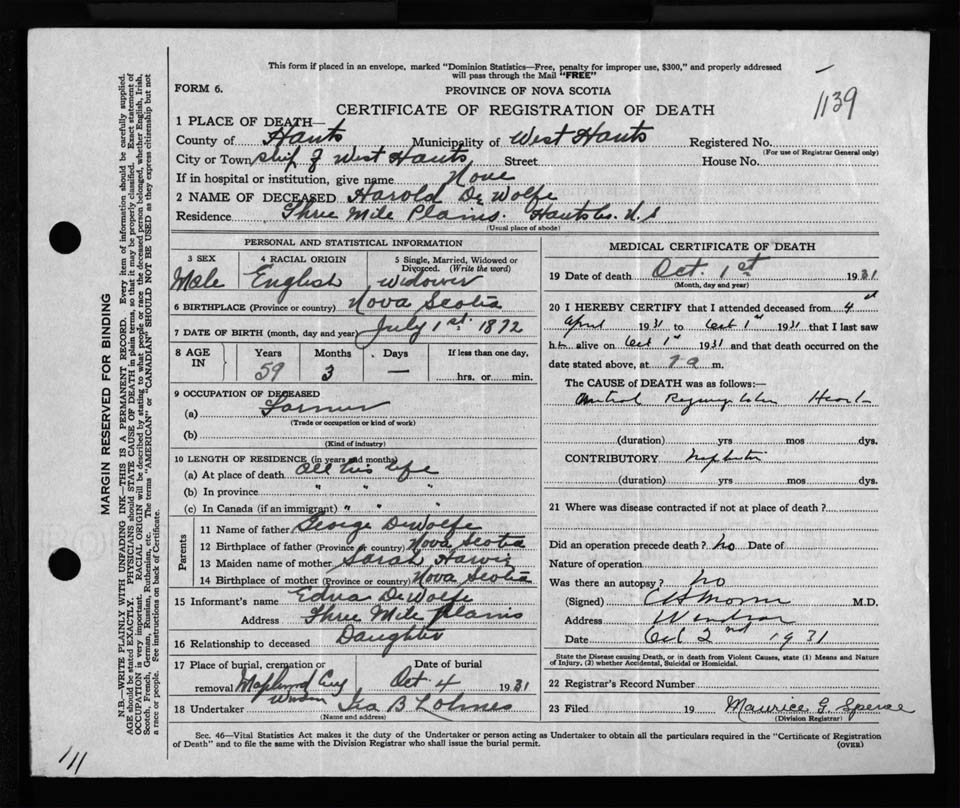 This form if placed in an envelope, marked "Dominion Statistics—Free, penalty for improper use, $300," and properly addressed
will pass through the Mail "FREE"
FORM 6.
PROVINCE OF NOVA SCOTIA
1139
CERTIFICATE OF REGISTRATION OF DEATH
1 PLACE OF DEATH—
County of Hants Municipality of West Hants Registered No.
(For use of Registrar General only)
City or Town of West Hants Street House No.
If in hospital or institution, give name None
2 NAME OF DECEASED Harold De Wolfe
Residence Three Mile Plains. Hants Co. N.S
(Usual place of abode)
PERSONAL AND STATISTICAL INFORMATION
3 SEX 4 RACIAL ORIGIN 5 Single, Married, Widowed or
Divorced. (Write the word)
Male English Widower
6 BIRTHPLACE (Province or country) Nova Scotia
7 DATE OF BIRTH (month, day and year) July 1st. 1872
8 AGE IN Years Months Days If less than one day,
59 3 — hrs. or min.
9 OCCUPATION OF DECEASED
(a) Farmer
(Trade or occupation or kind of work)
(b)
(Kind of industry)
10 LENGTH OF RESIDENCE (in years and months)
(a) At place of death All his life
(b) In province " " "
(c) In Canada (if an immigrant) " " "
Parents
11 Name of father George DeWolfe
12 Birthplace of father (Province or country) Nova Scotia
13 Maiden name of mother Sarah Harvie
14 Birthplace of mother (Province or country) Nova Scotia
15 Informant's name Edna DeWolfe
Address Three Mile Plains
16 Relationship to deceased Daughter
17 Place of burial, cremation or Date of burial
removal Maplewood Cey Windsor Oct. 4 1931
18 Undertaker Ira B Lohnes
(Name and address)
MEDICAL CERTIFICATE OF DEATH
19 Date of death Oct. 1st 1931
(Month, day and year)
20 I HEREBY CERTIFY that I attended deceased from 4
April 1931 to Oct 1st 1931 that I last saw
h alive on Oct 1st 1931 and that death occurred on the
date stated above, at m.
The CAUSE of DEATH was as follows:—
Mitral Regurgitation Heart
(duration) yrs mos dys.
CONTRIBUTORY Nephritis
(duration) yrs mos dys.
21 Where was disease contracted if not at place of death?
Did an operation precede death? no Date of
Nature of operation
Was there an autopsy? no
(Signed) M.D.
Address Windsor
Date Oct 2nd 1931
State the Disease causing Death, or in death from Violent Causes, state (1) Means and Nature
of Injury, (2) whether Accidental, Suicidal or Homicidal.
22 Registrar's Record Number
23 Filed 19 Maurice G. Spence
(Division Registrar)
Sec. 46—Vital Statistics Act makes it the duty of the Undertaker or person acting as Undertaker to obtain all the particulars required in the "Certificate of Registration
of Death" and to file the same with the Division Registrar who shall issue the burial permit.
(OVER)
MARGIN RESERVED FOR BINDING
N.B.—WRITE PLAINLY WITH UNFADING INK—THIS IS A PERMANENT RECORD. Every item of information should be carefully supplied.
AGE should be stated EXACTLY. PHYSICIANS should STATE CAUSE OF DEATH in plain terms, so that it may be properly classified. Exact statement of
OCCUPATION is very important. RACIAL ORIGIN will be described by stating to what people or race the deceased person belonged, whether English, Irish,
Scotch, French, German, Russian, Ruthenian, etc. The terms "AMERICAN" or "CANADIAN" SHOULD NOT BE USED, as they express citizenship but not
a race or people. See instructions on back of Certificate.
111